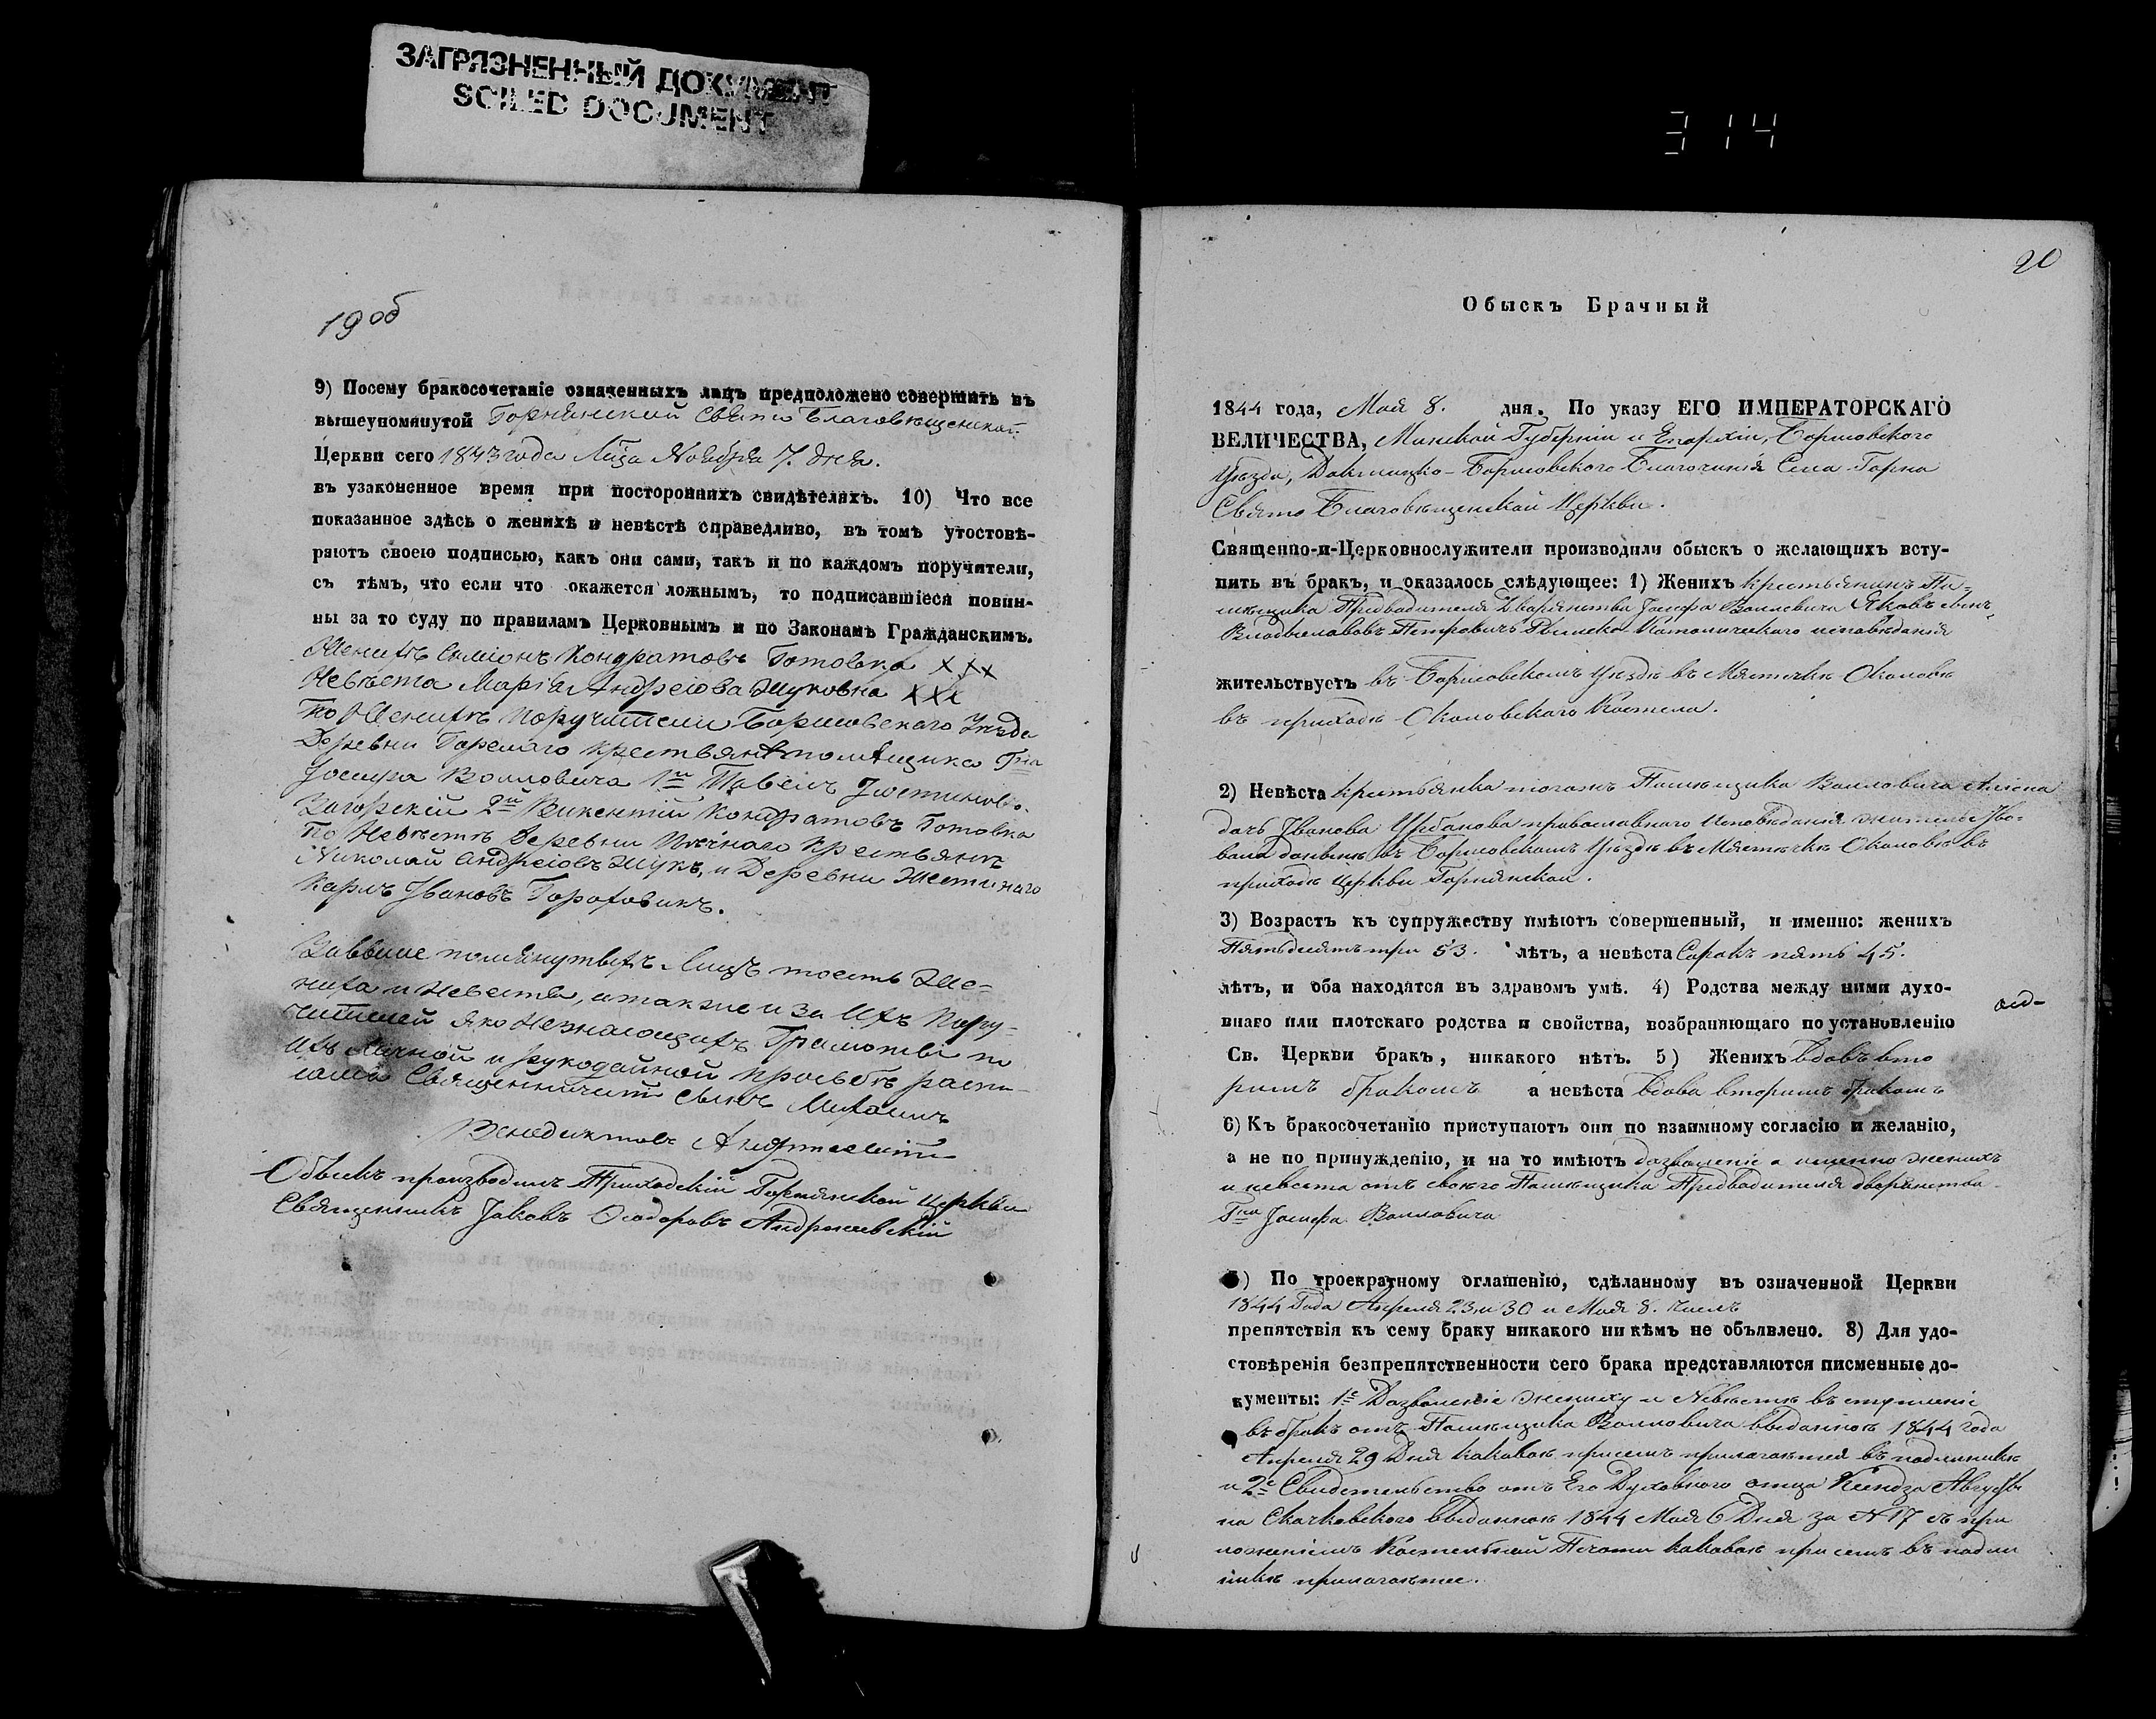 ЗАГРЯЗНЕННЫЙ ДОКУМЕНТ
SOILED DOCUMENT
314
19 об
9) Посему бракосочетаніе означенныхъ лицъ предположено совершить въ
вышеупомянутой Горнянской Свято Благовѣщенской
Церкви сего 1843 года Ноября 7. дня.
въ узаконенное время при постороннихъ свидѣтеляхъ. 10) Что все
показанное здѣсь о женихѣ и невѣстѣ справедливо, въ томъ утостовѣ-
ряютъ своею подписью, какъ они сами, такъ и по каждомъ поручители,
съ тѣмъ, что если что окажется ложнымъ, то подписавшіеся повин-
ны за то суду по правиламъ Церковнымъ и по Законамъ Гражданскимъ.
Женихъ Симіонъ Кондратовъ Готовка ххх
Невѣста Марія Андреіова Жуковна ххх
По Женихѣ Поручители Борисовскаго Уѣзда
Деревни Горелаго крестьяне помѣщика Гна
Іосифа Волловича 1й Павелъ Іюстиновъ
Загорскій 2й Викентій Кондратовъ Готовка
По Невѣстѣ Деревни крестьянинъ
Николай Андреіовъ Жукъ, и Деревни
Карлъ Івановъ
помянутыхъ Лицъ тоесть Же-
ниха и Невесты, а также и за Ихъ Пору-
чителей яко Незнающихъ Грамоты по
Ихъ Личной и рукодайной прозьбѣ распи-
Священническій сынъ Михаилъ
Венедиктовъ
Обыскъ производилъ Приходскій Горнянской Церкви
Священникъ Іаковъ Ѳеодоровъ Андрожевскій
20
Обыскъ Брачный
1844 года, Мая 8. дня. По указу ЕГО ИМПЕРАТОРСКАГО
ВЕЛИЧЕСТВА, Минской Губерніи и Епархіи, Борисовского
Уѣзда, Докшицко-Борисовского Благочинія Села Горна
Свято Благовѣщенской Церкви.
Священно-и-Церковнослужители производили обыскъ о желающихъ всту-
пить въ бракъ, и оказалось слѣдующее: 1) Женихъ крестьянинъ По-
мѣщика Предводителя Дворянства Іосифа Волловича Яковъ сынъ
Владиславовъ Петровичъ Римско-Католическаго исповѣданія
жительствуетъ въ Борисовскомъ Уѣздѣ въ Мястечкѣ Околовѣ
въ приходѣ Околовскаго Костела.
2) Невѣста крестьянка тогожъ Помѣщика Волловича Алена
дочь Іванова Урбанова православнаго исповѣданія
въ Борисовскомъ Уѣздѣ въ Мястечкѣ Околовѣ въ
приходѣ Церкви Горнянской.
3) Возрастъ къ супружеству имѣютъ совершенный, и именно: женихъ
Пятьдесятъ три 53. лѣтъ, а невѣста Сорокъ пять 45.
лѣтъ, и оба находятся въ здравомъ умѣ. 4) Родства между ними духо-
внаго или плотскаго родства и свойства, возбраняющаго по установленію
Св. Церкви бракъ, никакого нѣтъ. 5) Женихъ вдовъ вто
рымъ бракомъ а невѣста вдова вторымъ бракомъ
6) Къ бракосочетанію приступаютъ они по взаимному согласію и желанію,
а не по принужденію, и на то имѣютъ дозволеніе а именно женихъ
и невѣста отъ своего Помѣщика Предводителя дворянства
Гна Іосифа Волловича
7) По троекратному оглашенію, сдѣланному въ означенной Церкви
1844 Года Апреля 23. и 30 и Мая 8. чиселъ
препятствія къ сему браку никакого ни кѣмъ не объявлено. 8) Для удо-
стовѣренія безпрепятственности сего брака представляются писменные до-
кументы: 1е Дозволеніе жениху и Невѣстѣ въ ступленіе
въ бракъ отъ Помѣщика Волловича выданное 1844 года
Апреля 29 Дня каковое присемъ прилагается въ подлинникѣ
и 2е Свидетельство отъ Его Духовного отца Ксіендза Августы
на Скачковского выданное 1844 Мая 6 Дня за N 17 съ при
ложеніемъ Костельной Печати каковое при семъ въ подли
нникѣ прилагается.